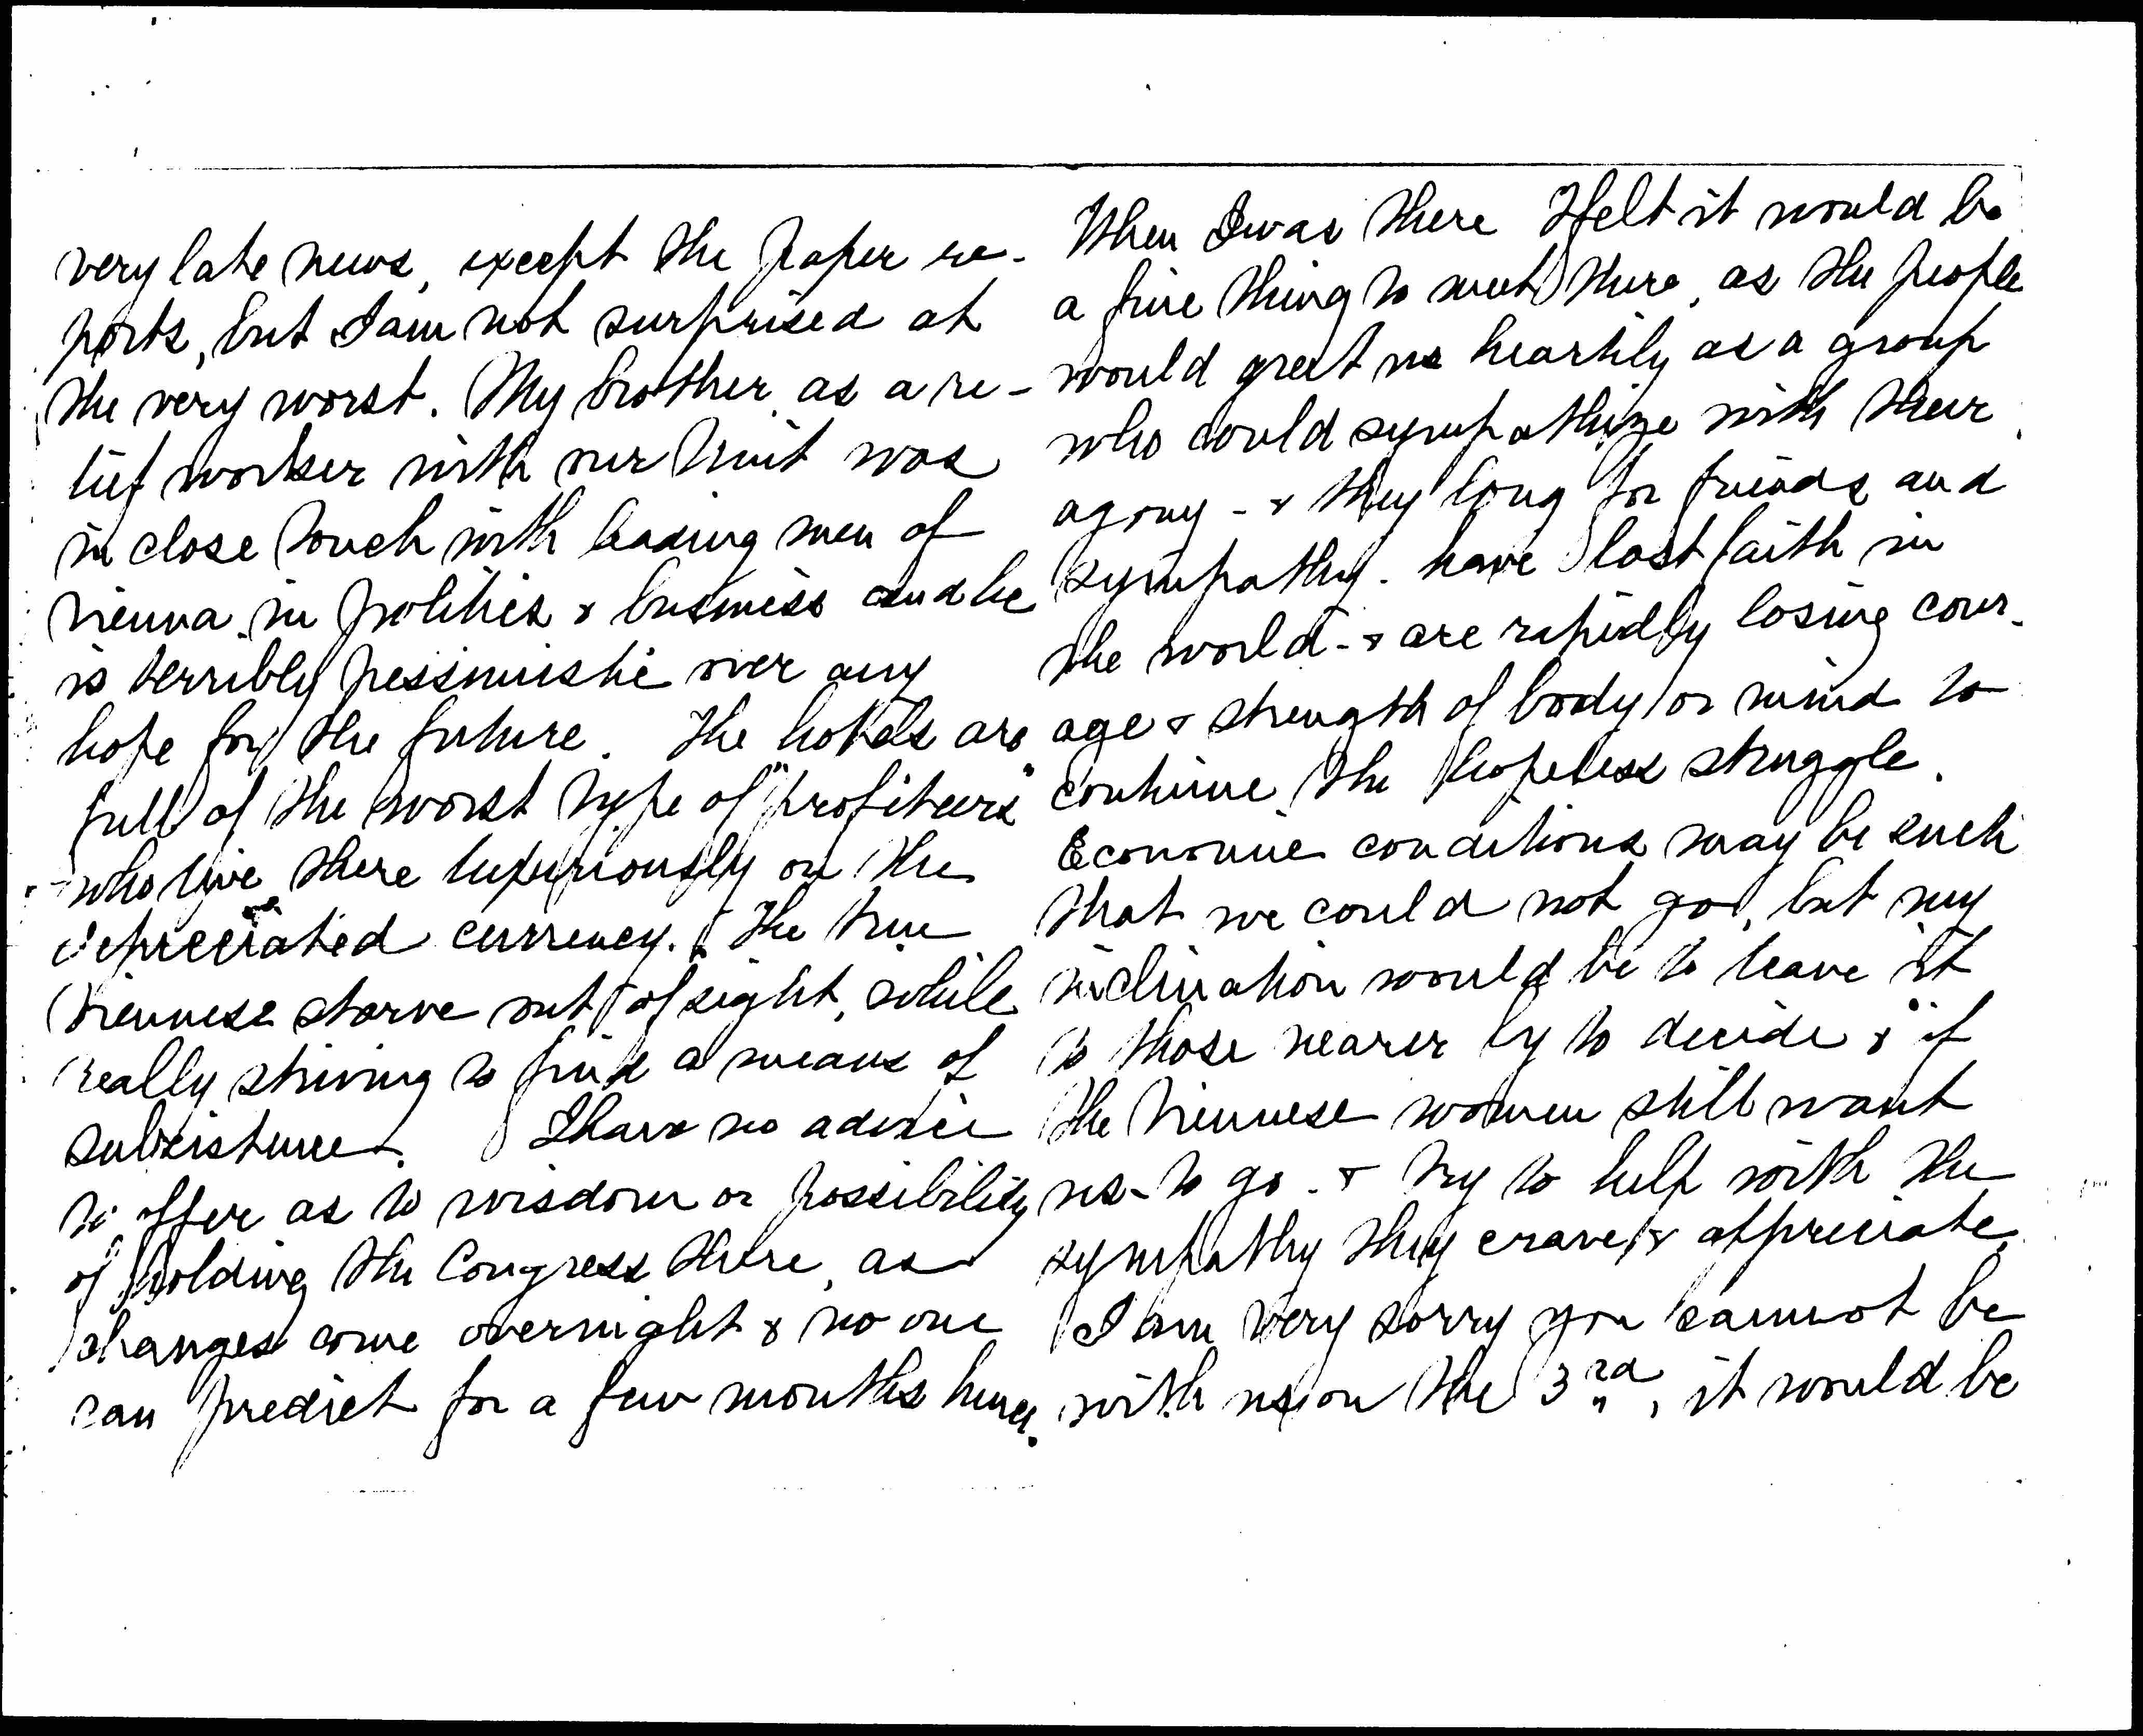 very late news, except the paper re-
ports, but I am not surprised at
the very worst. My brother, as a re-
lief worker with our Unit was
in close touch with leading men of
Vienna in politics & business and he
is terribly pessimistic over any
hope for the future. The hotels are
full of the worst type of "profiteers"
who live there luxuriously on the
depreciated currency. The true
Viennese starve out of sight, while
really striving to find a means of
subsistence. I have no advice
to offer as to wisdom or possibility
of holding the Congress there, as
changes come overnight & no one
can predict for a few months hence.
When I was there I felt it would be
a fine thing to meet there, as the people
would greet us heartily as a group
who could sympathize with their
agony - & they long for friends and
sympathy - have lost faith in
the world - & are rapidly losing cour-
age & strength of body or mind to
continue the hopeless struggle.
Economic conditions may be such
that we could not go, but my
inclination would be to leave it
to those nearer by to decide & if
the Viennese women still want
us - to go - & try to help with the
sympathy they crave & appreciate.
I am very sorry you cannot be
with us on the 3rd, it would be